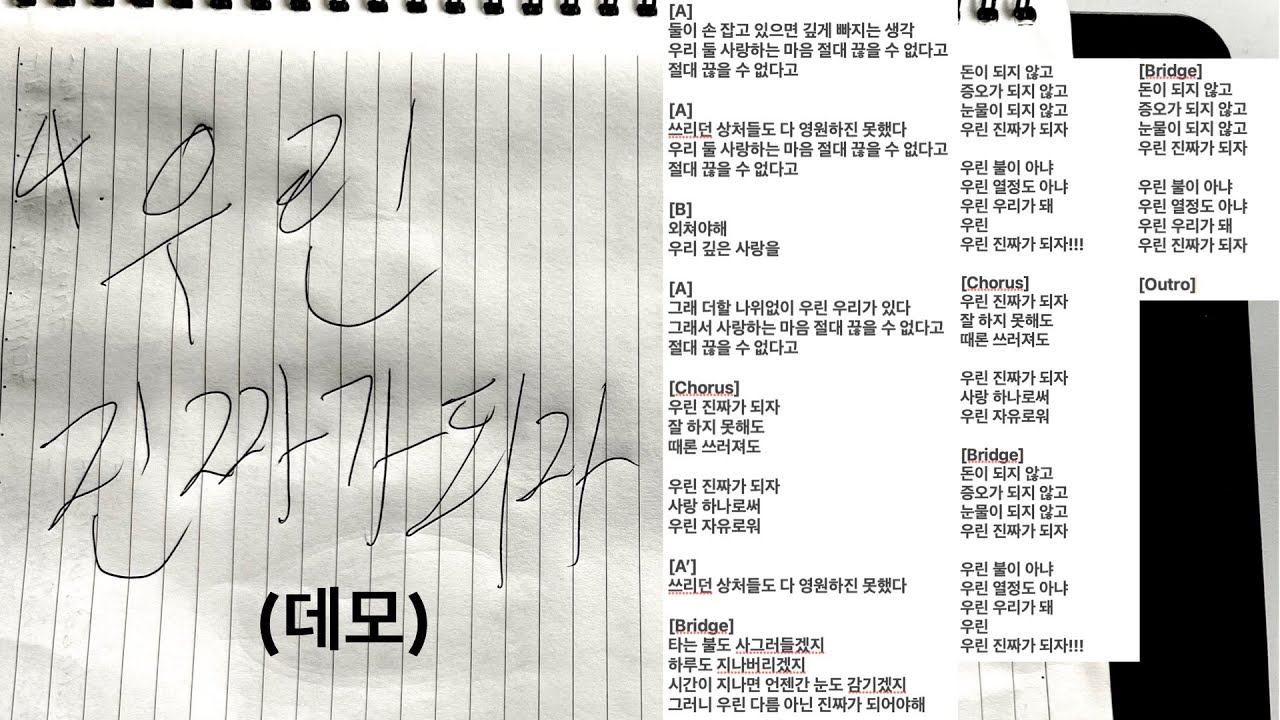 4. 우린
진짜가 되자
(데모)
[A]
둘이 손 잡고 있으면 깊게 빠지는 생각
우리 둘 사랑하는 마음 절대 끊을 수 없다고
절대 끊을 수 없다고
[A]
쓰리던 상처들도 다 영원하진 못했다
우리 둘 사랑하는 마음 절대 끊을 수 없다고
절대 끊을 수 없다고
[B]
외쳐야해
우리 깊은 사랑을
[A]
그래 더할 나위없이 우린 우리가 있다
그래서 사랑하는 마음 절대 끊을 수 없다고
절대 끊을 수 없다고
[Chorus]
우린 진짜가 되자
잘 하지 못해도
때론 쓰러져도
우린 진짜가 되자
사랑 하나로써
우린 자유로워
[A’]
쓰리던 상처들도 다 영원하진 못했다
[Bridge]
타는 불도 사그러들겠지
하루도 지나버리겠지
시간이 지나면 언젠간 눈도 감기겠지
그러니 우린 다름 아닌 진짜가 되어야해
돈이 되지 않고
증오가 되지 않고
눈물이 되지 않고
우린 진짜가 되자
우린 불이 아냐
우린 열정도 아냐
우린 우리가 돼
우린
우린 진짜가 되자!!!
[Chorus]
우린 진짜가 되자
잘 하지 못해도
때론 쓰러져도
우린 진짜가 되자
사랑 하나로써
우린 자유로워
[Bridge]
돈이 되지 않고
증오가 되지 않고
눈물이 되지 않고
우린 진짜가 되자
우린 불이 아냐
우린 열정도 아냐
우린 우리가 돼
우린
우린 진짜가 되자!!!
[Bridge]
돈이 되지 않고
증오가 되지 않고
눈물이 되지 않고
우린 진짜가 되자
우린 불이 아냐
우린 열정도 아냐
우린 우리가 돼
우린 진짜가 되자
[Outro]